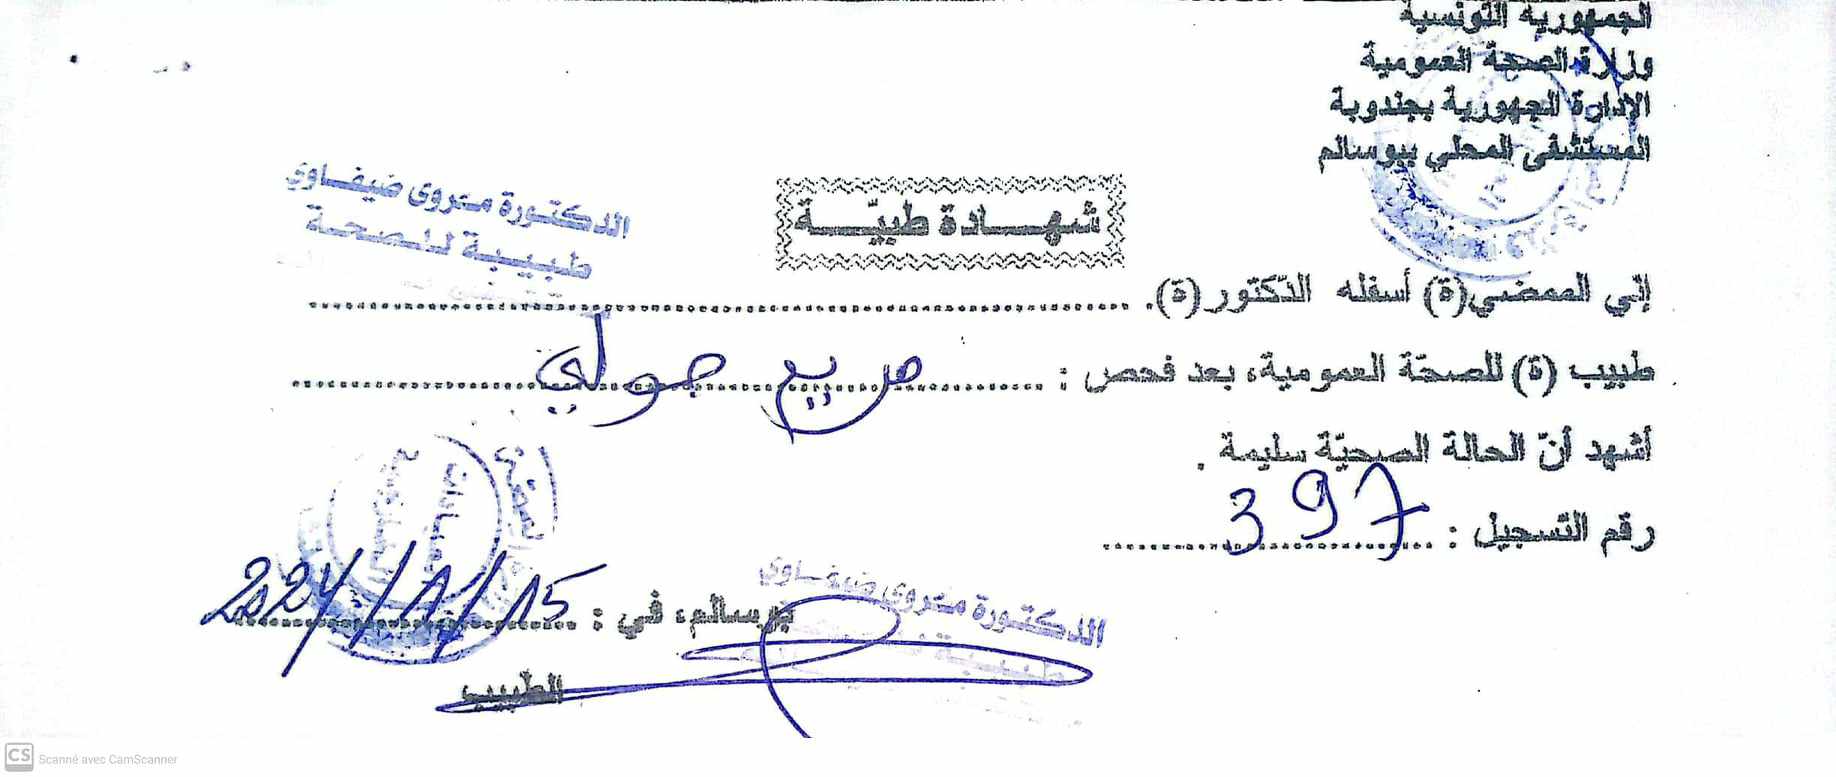 الجمهورية التونسية
وزارة الصحة العمومية
الإدارة الجهورية بجندوبة
المستشفى المحلي ببوسالم
الدكتورة مروى ضيفاوي
طبيبة للصحة
شهادة طبيّة
إنّي الممضي(ة) أسفله الدّكتور(ة).
طبيب (ة) للصحّة العمومية، بعد فحص : مريم جولي
أشهد أنّ الحالة الصحيّة سليمة .
رقم التسجيل : 397
بوسالم، في : 2024/1/15
الدكتورة مروى ضيفاوي
طبيبة
الطبيب
CS Scanné avec CamScanner